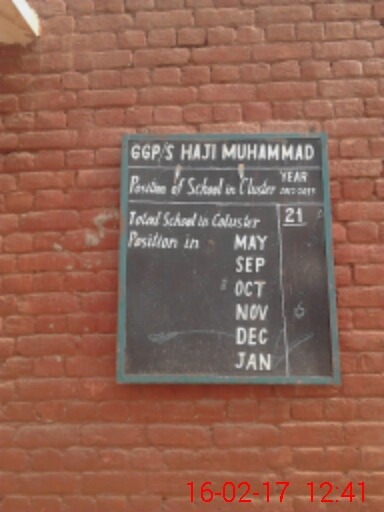 GGP/S HAJI MUHAMMAD
Position of School in Cluster YEAR
Total School in Coluster 21
Position in MAY
SEP
OCT
NOV 6
DEC
JAN
16-02-17 12:41